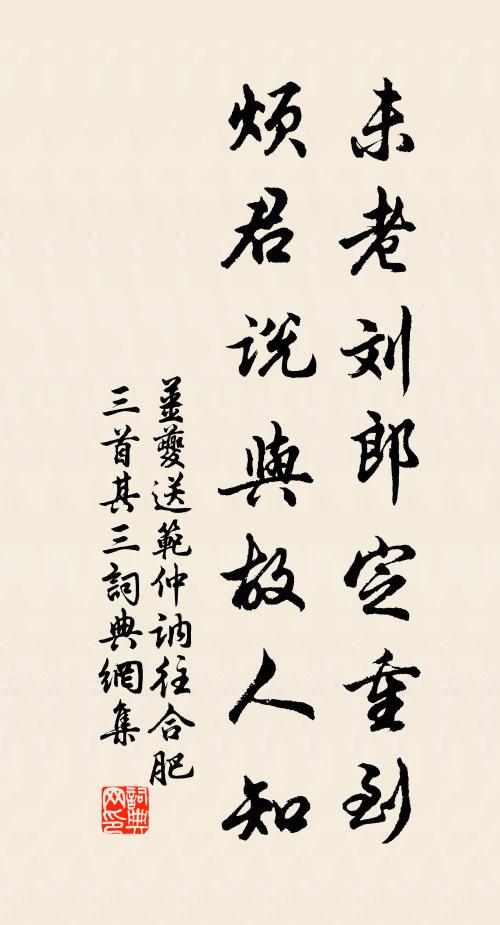 未老刘郎定重到
烦君说與故人知
姜夔送範仲讷往合肥
三首其三詞典網集
詞典网印